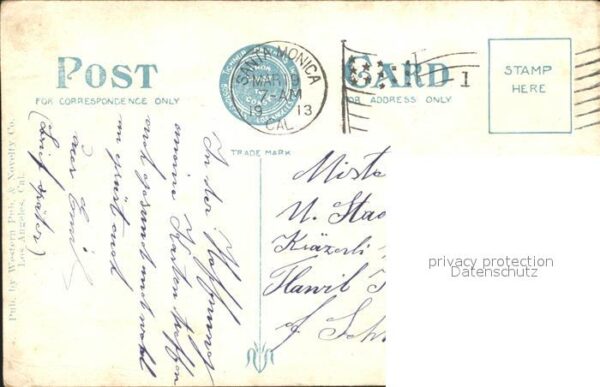 POST CARD
FOR CORRESPONDENCE ONLY
FOR ADDRESS ONLY
STAMP
HERE
SANTA MONICA
MAR
7-AM
19 13
CAL.
1
TRADE MARK
Pub. by Western Pub. & Novelty Co.
Los Angeles, Cal.
In der Hoffnung
meine Karten treffen
noch gesund und wohl
grüsst euch
euer Emil
(Brief später)
Miste
U. Staa
Flawil
Sch
privacy protection
Datenschutz